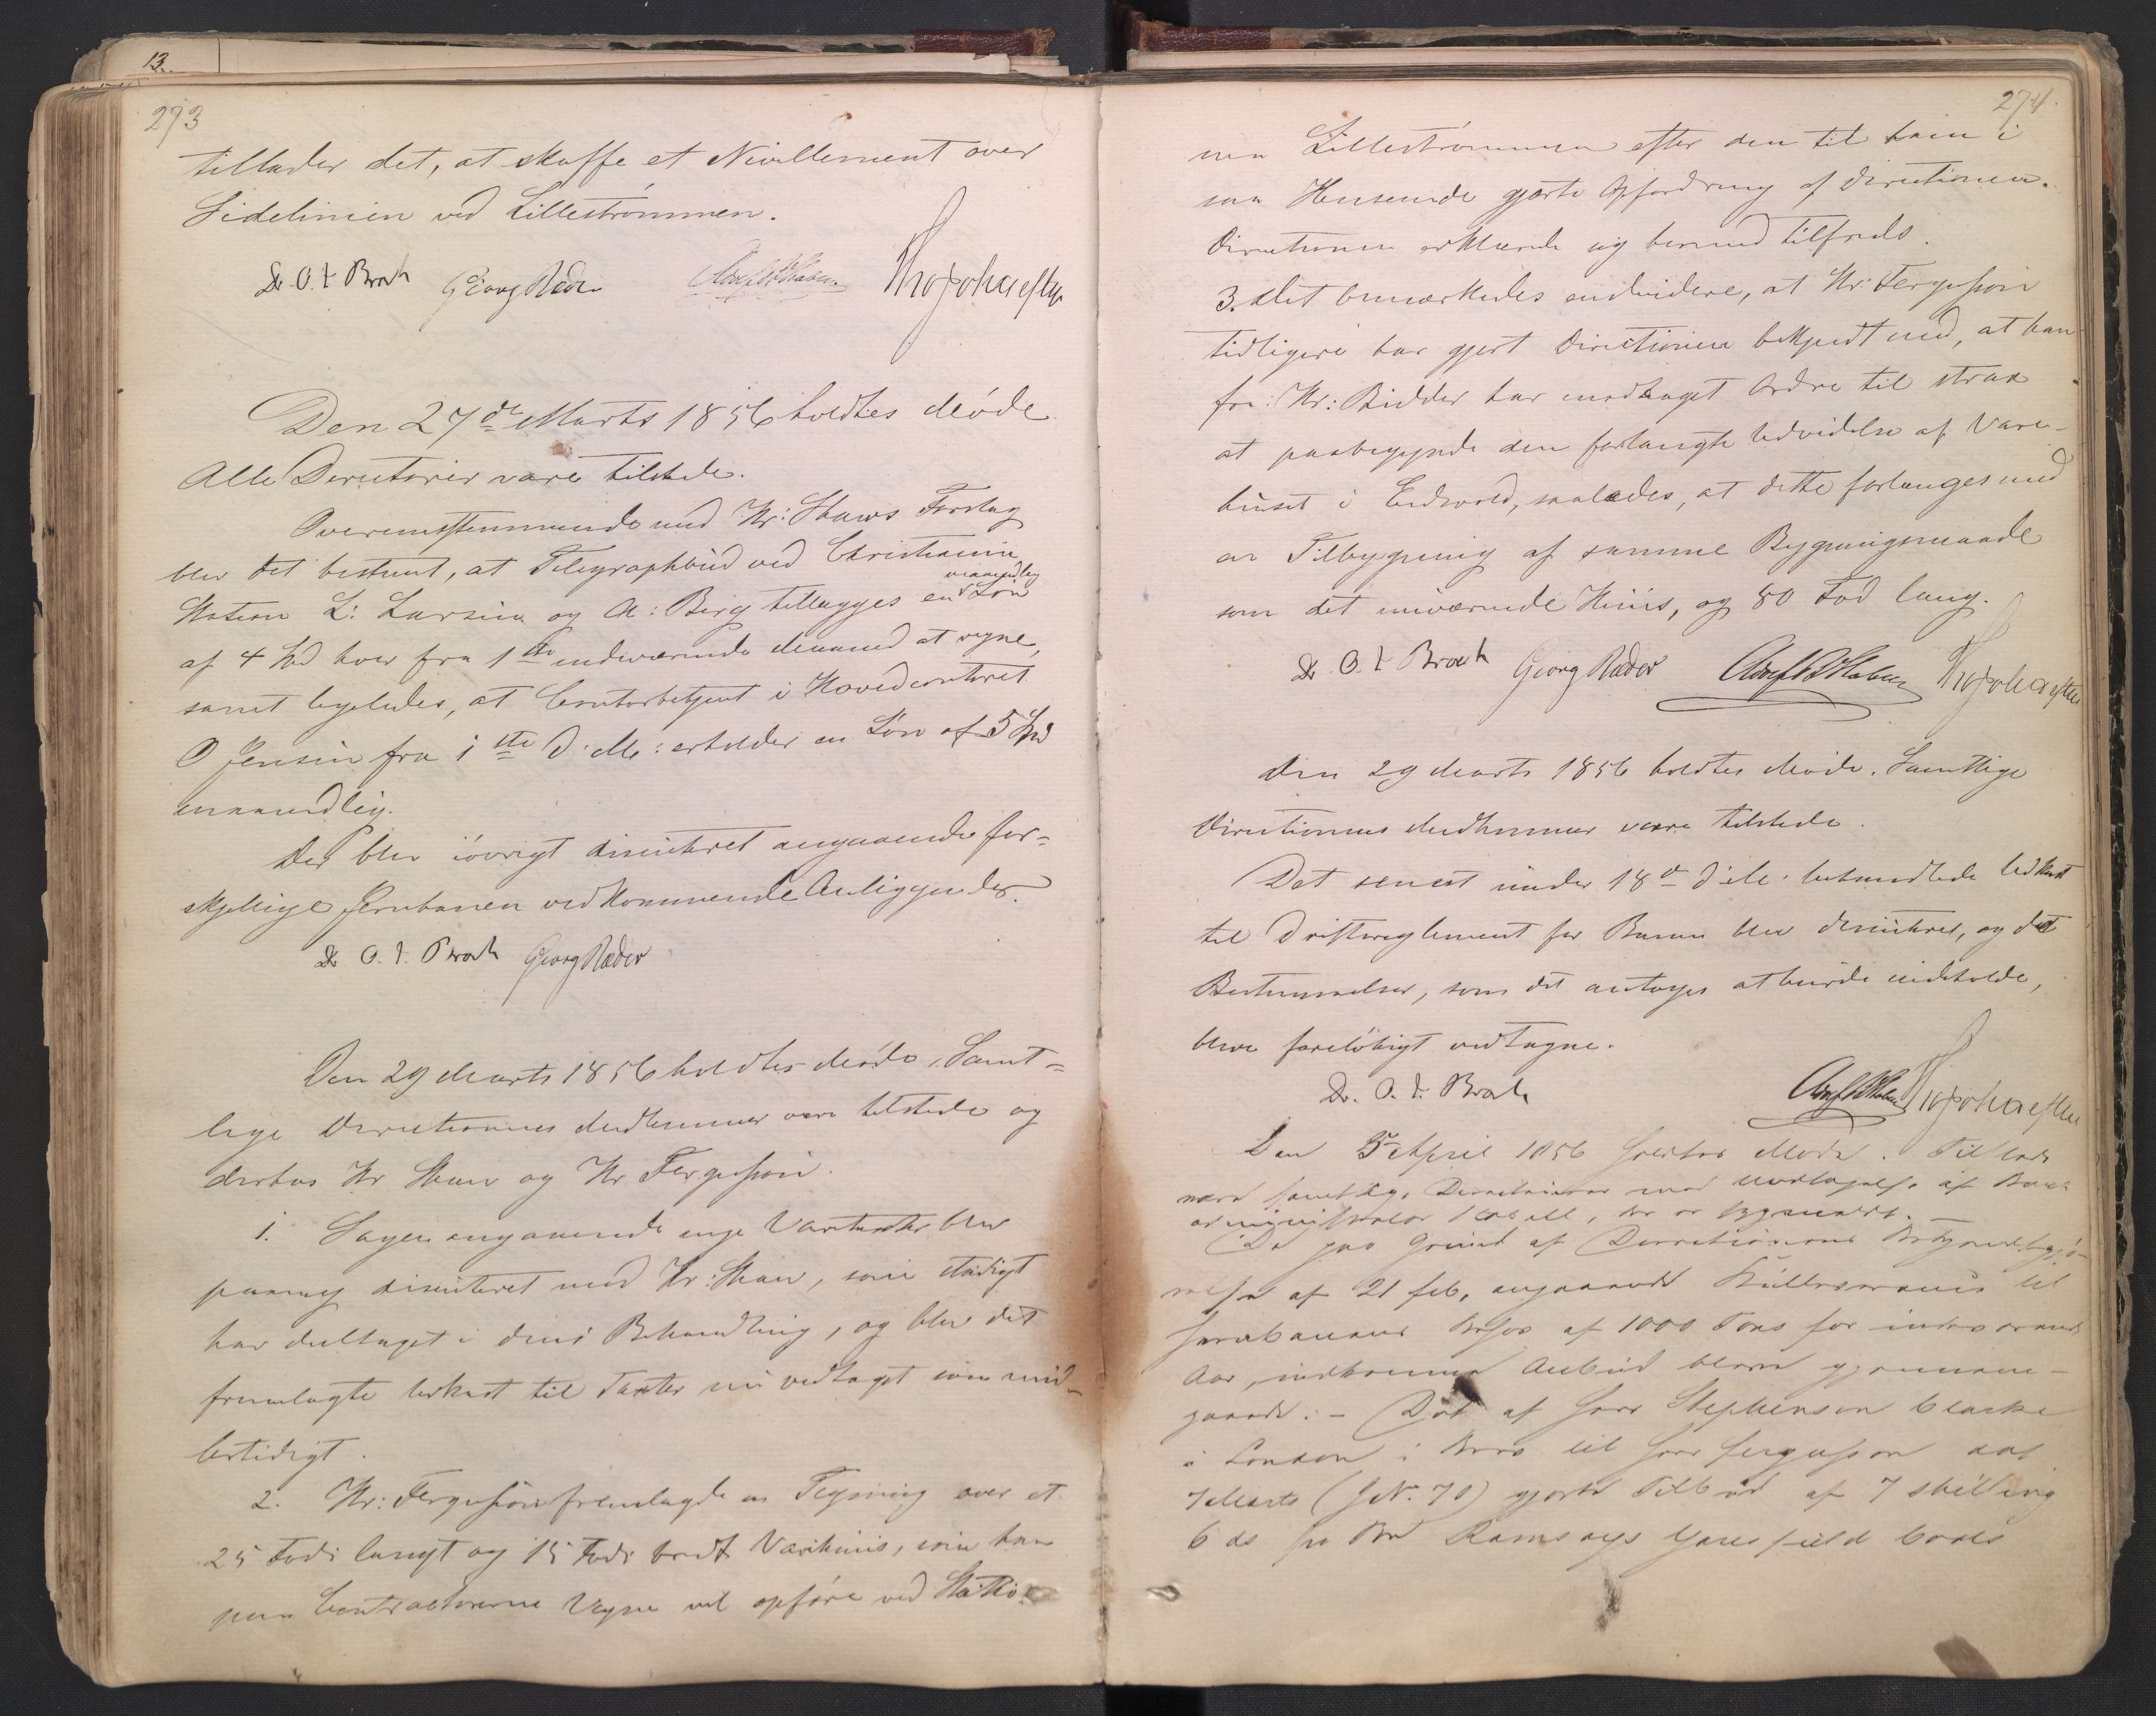 13
273
tillader det, at skaffe et Nivellement over
Sidelinien ved Lillestrømmen.
Dr. O. J. Broch Georg Ræder Thojohnhefty
Den 27de Marts 1856 holdtes Møde
Alle Directører vare tilstede.
Overensstemmende med Hr: Shaws Forslag
blev det bestemt, at Telegraphbud ved Christiania
maanedlig
Station L: Larsen og A: Berg tillægges en Løn
af 4 Spd hver fra 1ste indeværende Maaned at regne,
samt ligeledes, at Contorbetjent i Hovedcontoret
O Jensen fra 1ste d: M: erholder en Løn af 5 Spd
maanedlig.
Der blev iøvrigt discuteret angaaende for-
skjellige Jernbanen vedkommende Anliggender.
Dr. O. J. Broch Georg Ræder
Den 29 Marts 1856 holdtes Møde. Samt-
lige Directionens Medlemmer vare tilstede og
desuden Hr Shaw og Hr Fergusson.
1. Sagen angaaende nye Varetaxter blev
paany discuteret med Hr: Shaw, som stadigt
har deeltaget i dens Behandling, og blev det
fremlagte Udkast til Taxter nu vedtaget som mid-
lertidigt.
2. Hr: Fergusson fremlagde en Tegning over et
25 Fods langt og 15 Fods bredt Varehuus, som han
paa Contractorerne Vegne vil opføre ved Statio-
274.
nen Lillestrømmen efter den til ham i
saa Henseende gjorte Opfordring af Directionen.
Directionen erklærede sig hermed tilfreds.
3. Det bemærkedes endvidere, at Hr: Fergusson
tidligere har gjort Directionen bekjendt med, at han
fra Hr: Bidder har modtaget Ordre til strax
at paabegynde den forlangte Udvidelse af Vare-
huset i Eidsvold, saaledes, at dette forlænges med
en Tilbygning af samme Bygningsmaade
som det nuværende Huus, og 80 Fod lang.
Dr. O. J. Broch Georg Ræder Thojohnhefty
Den 29 Marts 1856 holdtes Møde. Samtlige
Directionens Medlemmer vare tilstede.
Det senest under 18de d: M: behandlede Udkast
til Driftsreglement for Banen blev discuteret, og de
Bestemmelser, som det antoges at burde indeholde,
bleve foreløbigt vedtagne.
Dr. O. J. Broch Thojohnhefty
Den 5 April 1856 holdtes Møde. Tilstede
vare samtlige Directeurer med Undtagelse af Bank
administrator, der er sygmeldt.
De paa Grund af Directionens Bekjendtgjø-
relse af 21 feb. angaaende Kulleverance til
Jernbanens Behov af 1000 Tons for indeværende
Aar, indkomne Anbud bleve gjennem-
gaaede. – Det af Herr Stephenson Clarke
i London i Brev til Herr Fergusson dat
7 Marts (J.N. 70) gjorte Tilbud af 7 shilling
6 ds pr Ton Ramsays Garesfield Coals